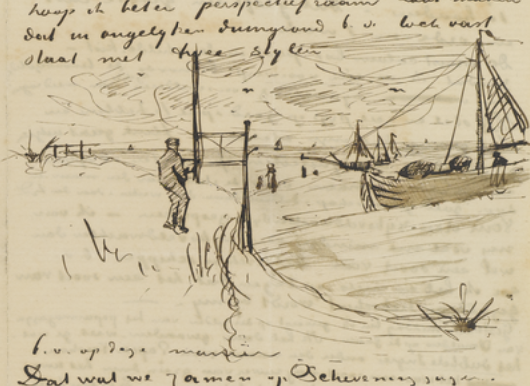 hoop ik beter perspectiefraam
dat in ongelyken duingrond b.v. ook vast
staat met twee stylen
b.v. op deze manier
Dat wat we zamen op Scheveningen zagen.